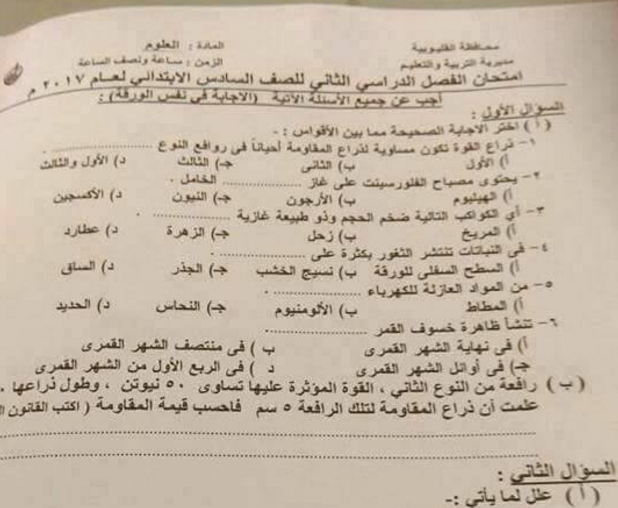 محافظة القليوبية
المادة : العلوم
مديرية التربية والتعليم
الزمن : ساعة ونصف الساعة
امتحان الفصل الدراسي الثاني للصف السادس الابتدائي لعام ٢٠١٧ م
أجب عن جميع الأسئلة الآتية (الاجابة في نفس الورقة) :
السؤال الأول :
( أ ) اختر الاجابة الصحيحة مما بين الأقواس : -
١- ذراع القوة تكون مساوية لذراع المقاومة أحياناً فى روافع النوع ..................
أ) الأول ب) الثانى جـ) الثالث د) الأول والثالث
٢- يحتوى مصباح الفلورسينت على غاز .................. الخامل .
أ) الهيليوم ب) الأرجون جـ) النيون د) الأكسجين
٣- أي الكواكب التالية ضخم الحجم وذو طبيعة غازية .................. .
أ) المريخ ب) زحل جـ) الزهرة د) عطارد
٤- فى النباتات تنتشر الثغور بكثرة على .................. .
أ) السطح السفلى للورقة ب) نسيج الخشب جـ) الجذر د) الساق
٥- من المواد العازلة للكهرباء .................. .
أ) المطاط ب) الألومنيوم جـ) النحاس د) الحديد
٦- تنشأ ظاهرة خسوف القمر ..................
أ) فى نهاية الشهر القمرى ب ) فى منتصف الشهر القمرى
جـ) فى أوائل الشهر القمرى د ) فى الربع الأول من الشهر القمرى
( ب ) رافعة من النوع الثاني ، القوة المؤثرة عليها تساوى ٥٠ نيوتن ، وطول ذراعها .
علمت أن ذراع المقاومة لتلك الرافعة ٥ سم فاحسب قيمة المقاومة ( اكتب القانون
السؤال الثاني :
( أ ) علل لما يأتي :-